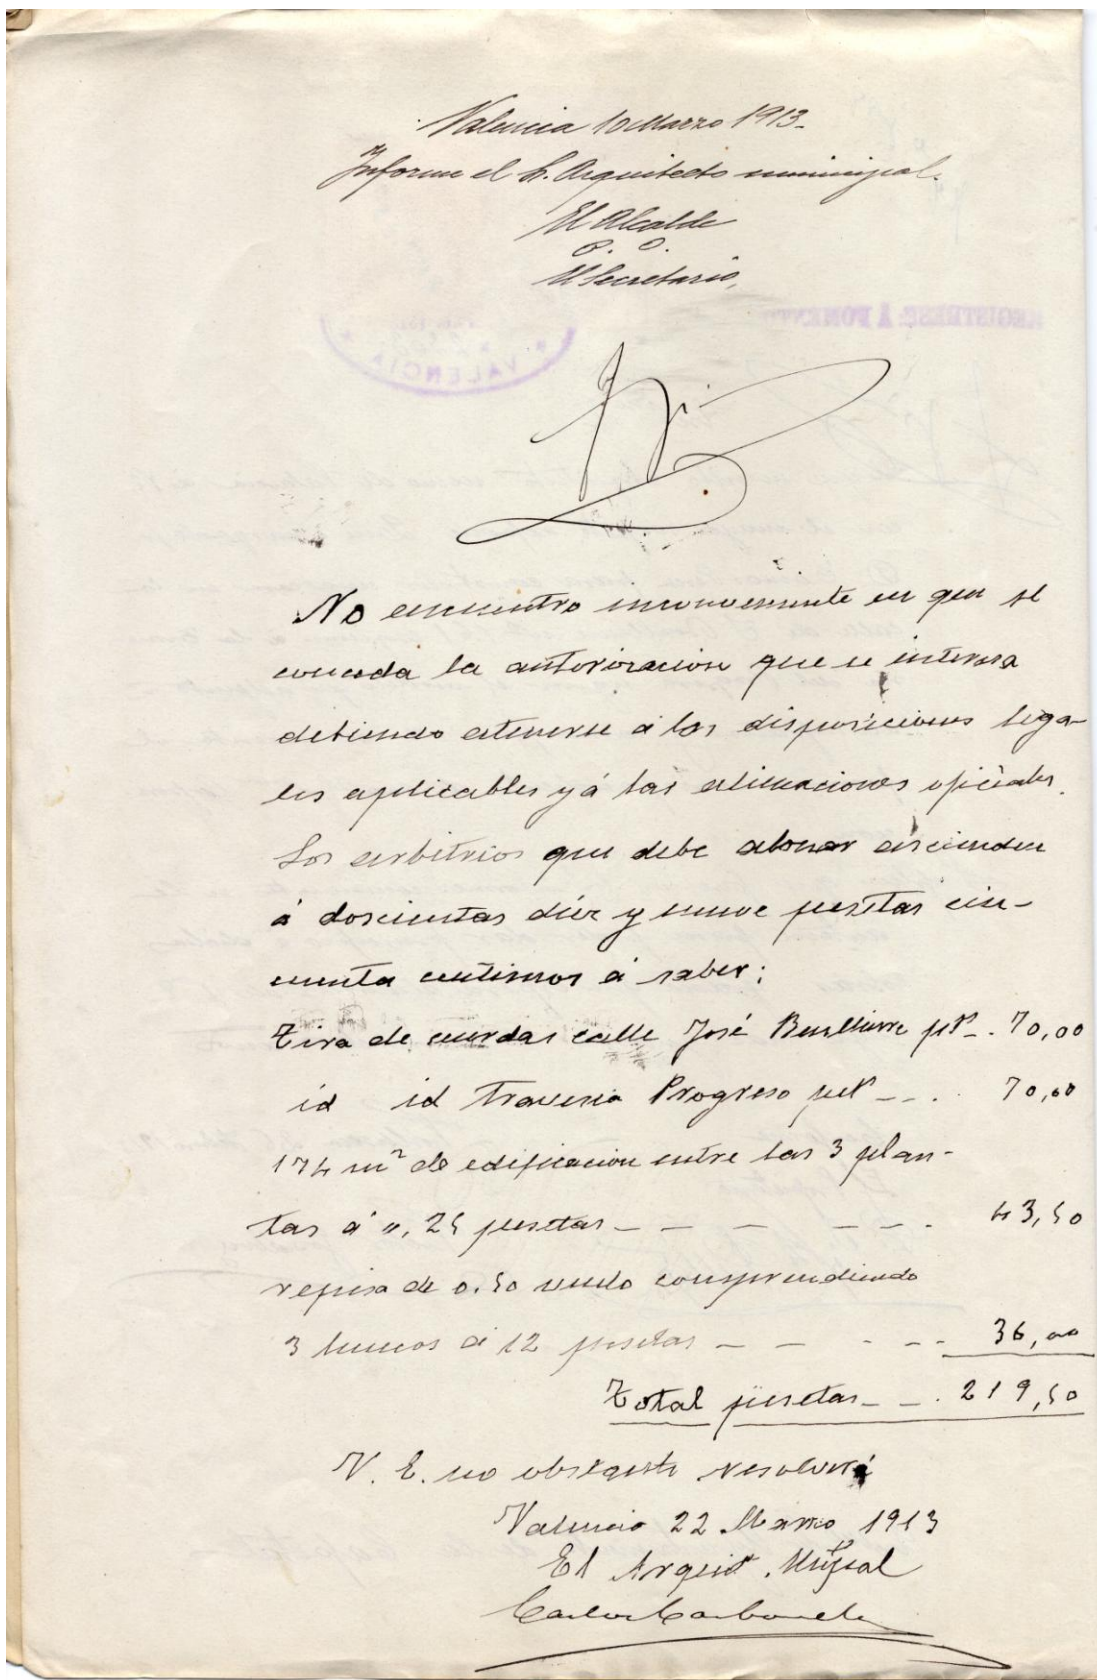 Valencia 10 Marzo 1913.
Informe el Sr. Arquitecto municipal.
El Alcalde
P. O.
El Secretario,
REGISTRESE Á FOMENTO
VALENCIA
No encuentro inconveniente en que se
conceda la autorizacion que se interesa
debiendo atenerse á las disposiciones lega-
les aplicables y á las alineaciones oficiales.
Los arbitrios que debe abonar ascienden
á doscientas diez y nueve pesetas cin-
cuenta centimos á saber:
Tira de cuerdas calle José Benlliure pts_. 70,00
id id Travesia Progreso pts _ _ . 70,00
174 m² de edificacion entre las 3 plan-
tas á 0,25 pesetas _ _ _ _ _ . 43,50
repisa de 0.50 vuelo comprendiendo
3 huecos á 12 pesetas _ _ _ _ 36,00
Total pesetas _ _ . 219,50
V. E. no obstante resolverá
Valencia 22 Marzo 1913
El Arquitº. Mupal
Carlos Carbonell